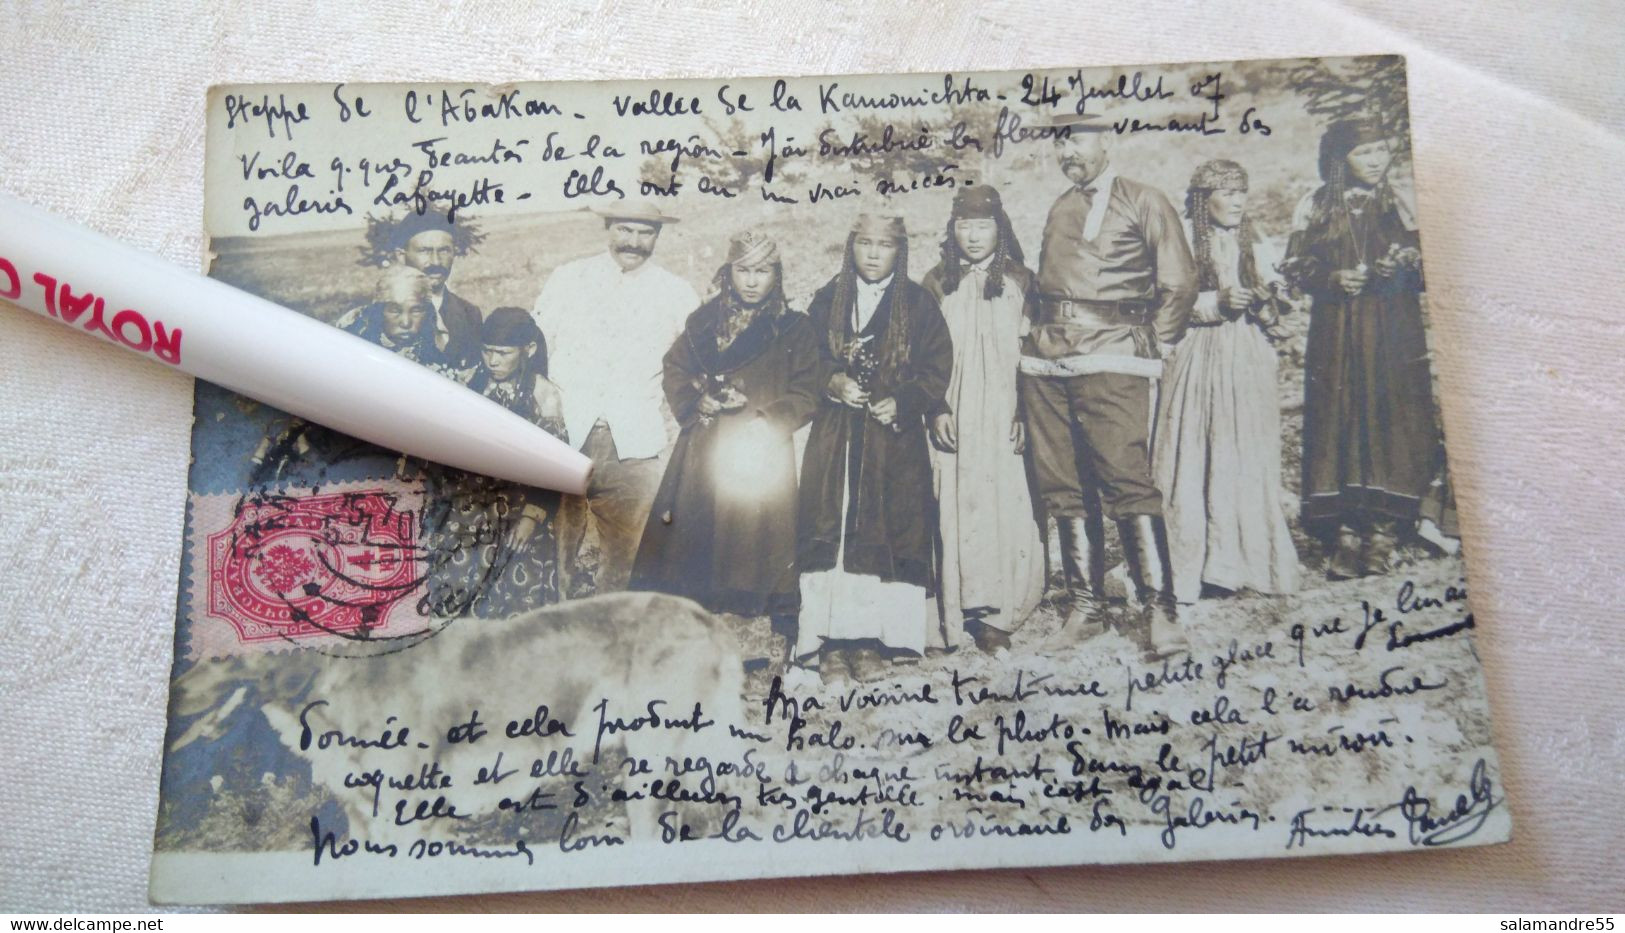 Steppe de l'Abakan - Vallée de la Kamouichta - 24 Juillet 07
Voilà q.ques beautés de la région - J'ai distribué les fleurs venant des
galeries Lafayette - Elles ont eu un vrai succès.
Ma voisine tient une petite glace que je lui ai
donnée - et cela produit un halo sur la photo. Mais cela l'a rendue
coquette et elle se regarde à chaque instant dans le petit miroir.
Elle est d'ailleurs très gentille. mais c'est égal
Nous sommes loin de la clientèle ordinaire des Galeries. Amitiés
ROYAL
4
salamandre55